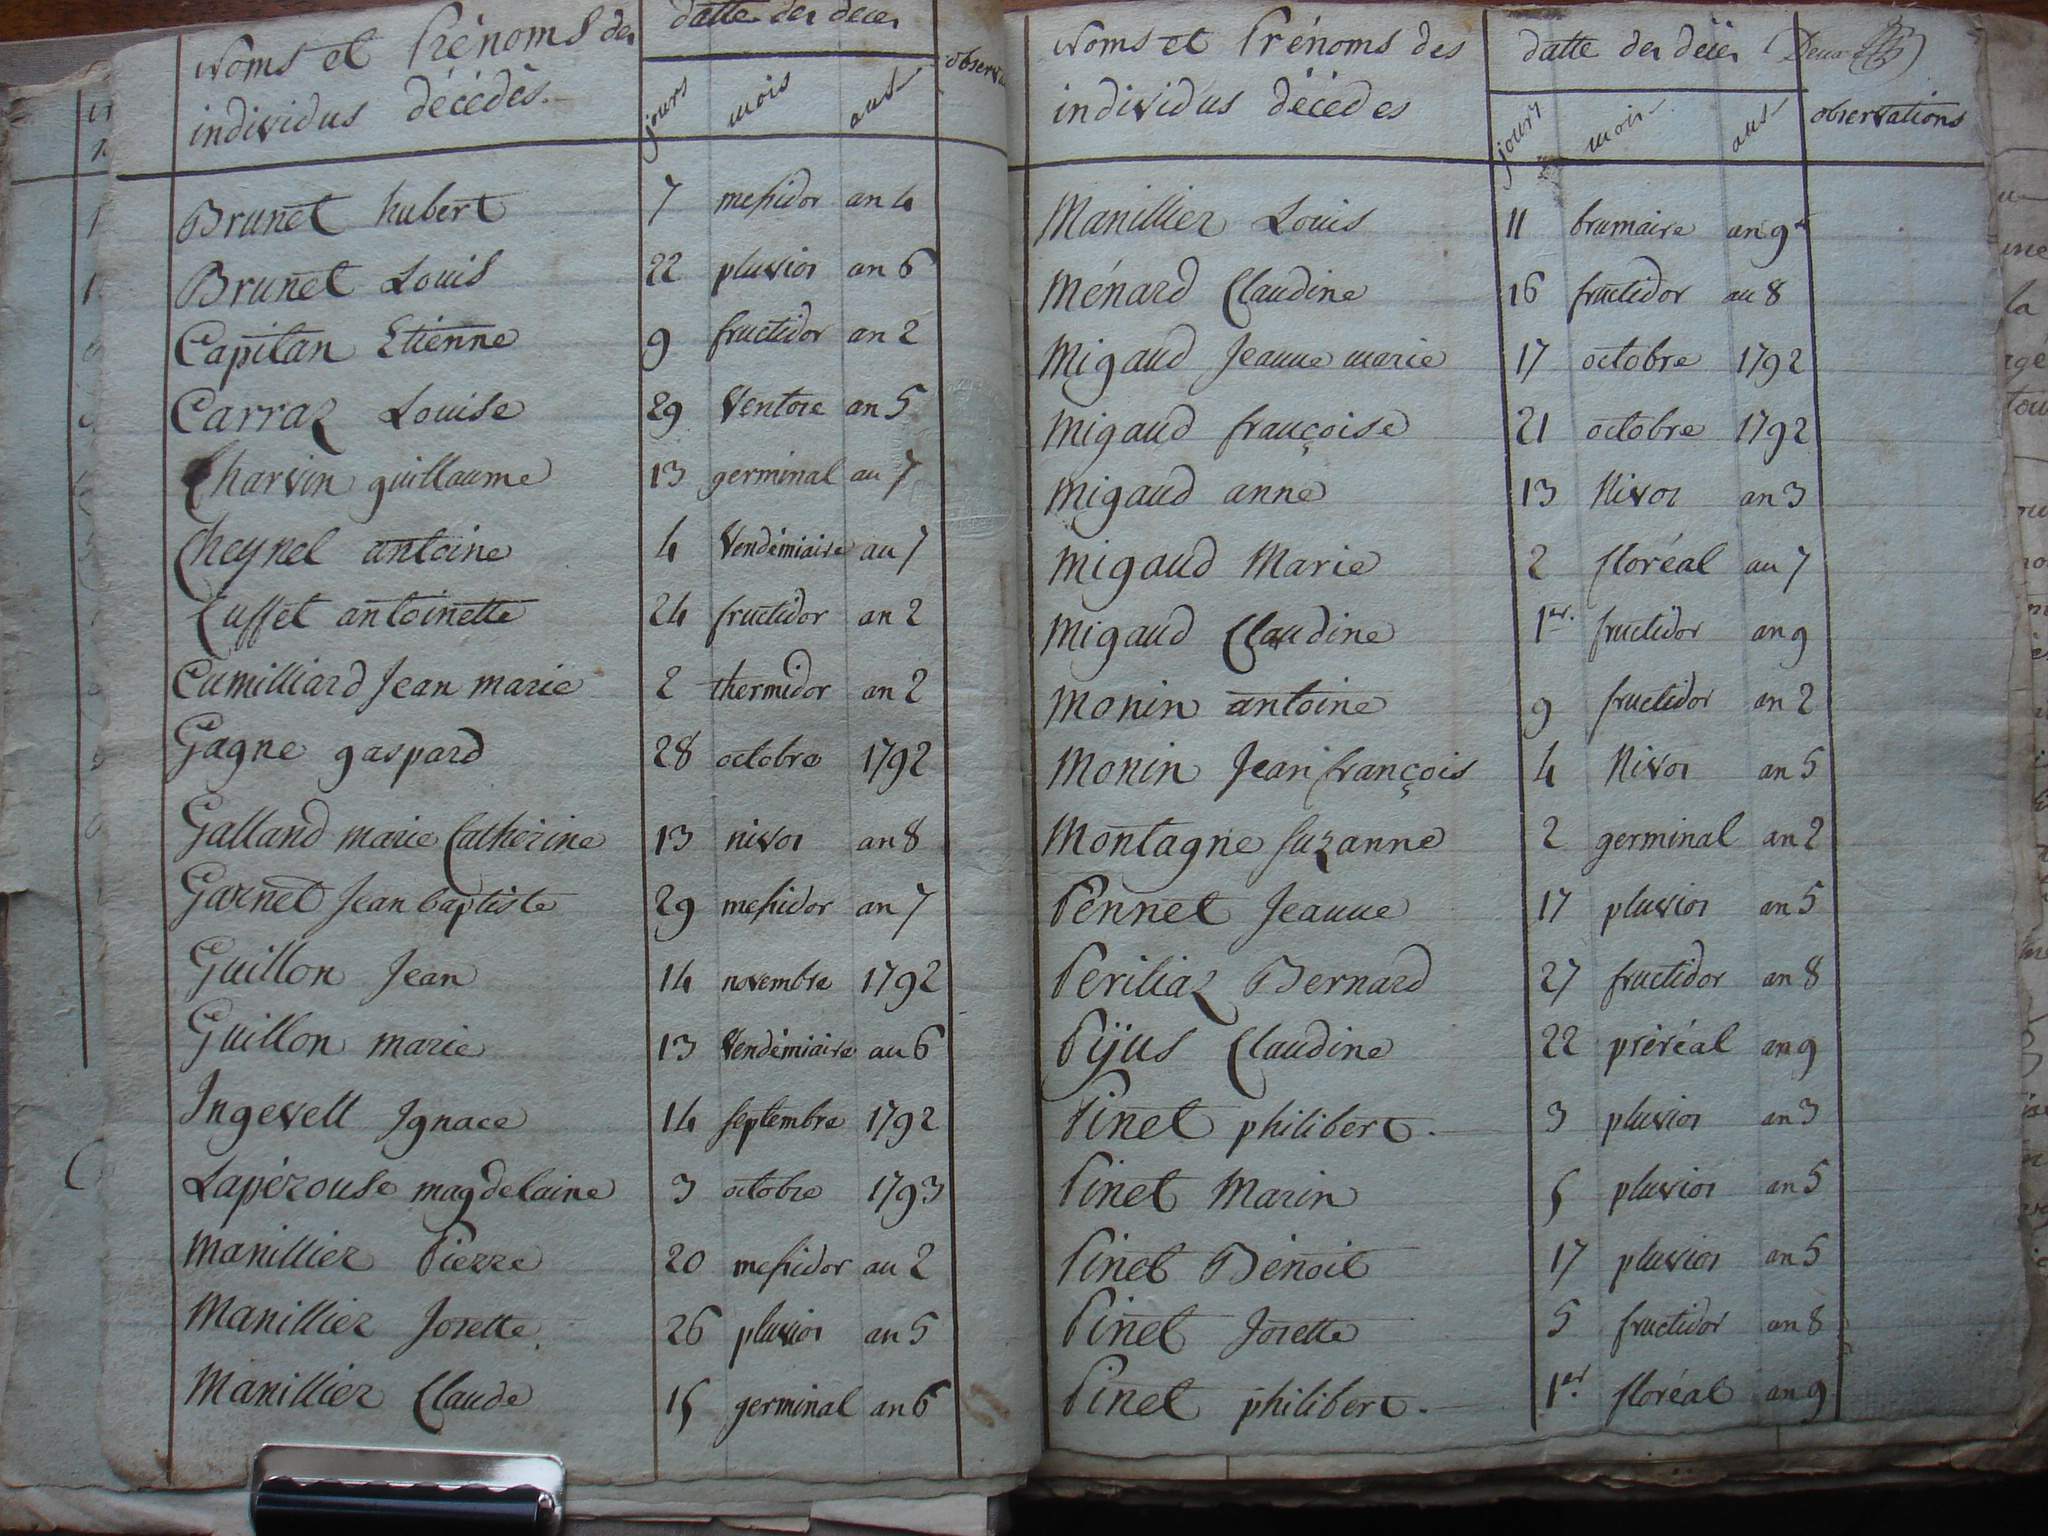 Noms et Prénoms des
individus décédés
datte des décès
jours mois ans
observ
Brunet hubert 7 messidor an 4
Brunet Louis 22 pluvios an 6
Capitan Etienne 9 fructidor an 2
Carraz Louise 29 Ventose an 5
Charvin guillaume 13 germinal an 7
Cheynel antoine 4 Vendémiaire an 7
Cuffet antoinette 24 fructidor an 2
Cumilliard Jean marie 2 thermidor an 2
Gagne gaspard 28 octobre 1792
Galland marie Catherine 13 nivos an 8
Garnet Jean baptiste 29 messidor an 7
Guillon Jean 14 novembre 1792
Guillon marie 13 Vendémiaire an 6
Ingevelt Ignace 14 septembre 1792
Lapérouse magdelaine 3 octobre 1793
Manillier Pierre 20 messidor an 2
Manillier Josette 26 pluvios an 5
Manillier Claude 15 germinal an 6
Noms et Prénoms des
individus décédés
datte des décès
Deux
jours mois ans
observations
Manillier Louis 11 brumaire an 9
Ménard Claudine 16 fructidor an 8
Migaud Jeanne marie 17 octobre 1792
Migaud françoise 21 octobre 1792
Migaud anne 13 Nivos an 3
Migaud Marie 2 floréal an 7
Migaud Claudine 1er. fructidor an 9
Monin antoine 9 fructidor an 2
Monin Jean françois 4 Nivos an 5
Montagne Suzanne 2 germinal an 2
Pennet Jeanne 17 pluvios an 5
Periliaz Bernard 27 fructidor an 8
Pijus Claudine 22 préréal an 9
Pinet philibert. 3 pluvios an 3
Pinet Marin 5 pluvios an 5
Pinet Benoit 17 pluvios an 5
Pinet Josette 5 fructidor an 8
Pinet philibert. 1er. floréal an 9